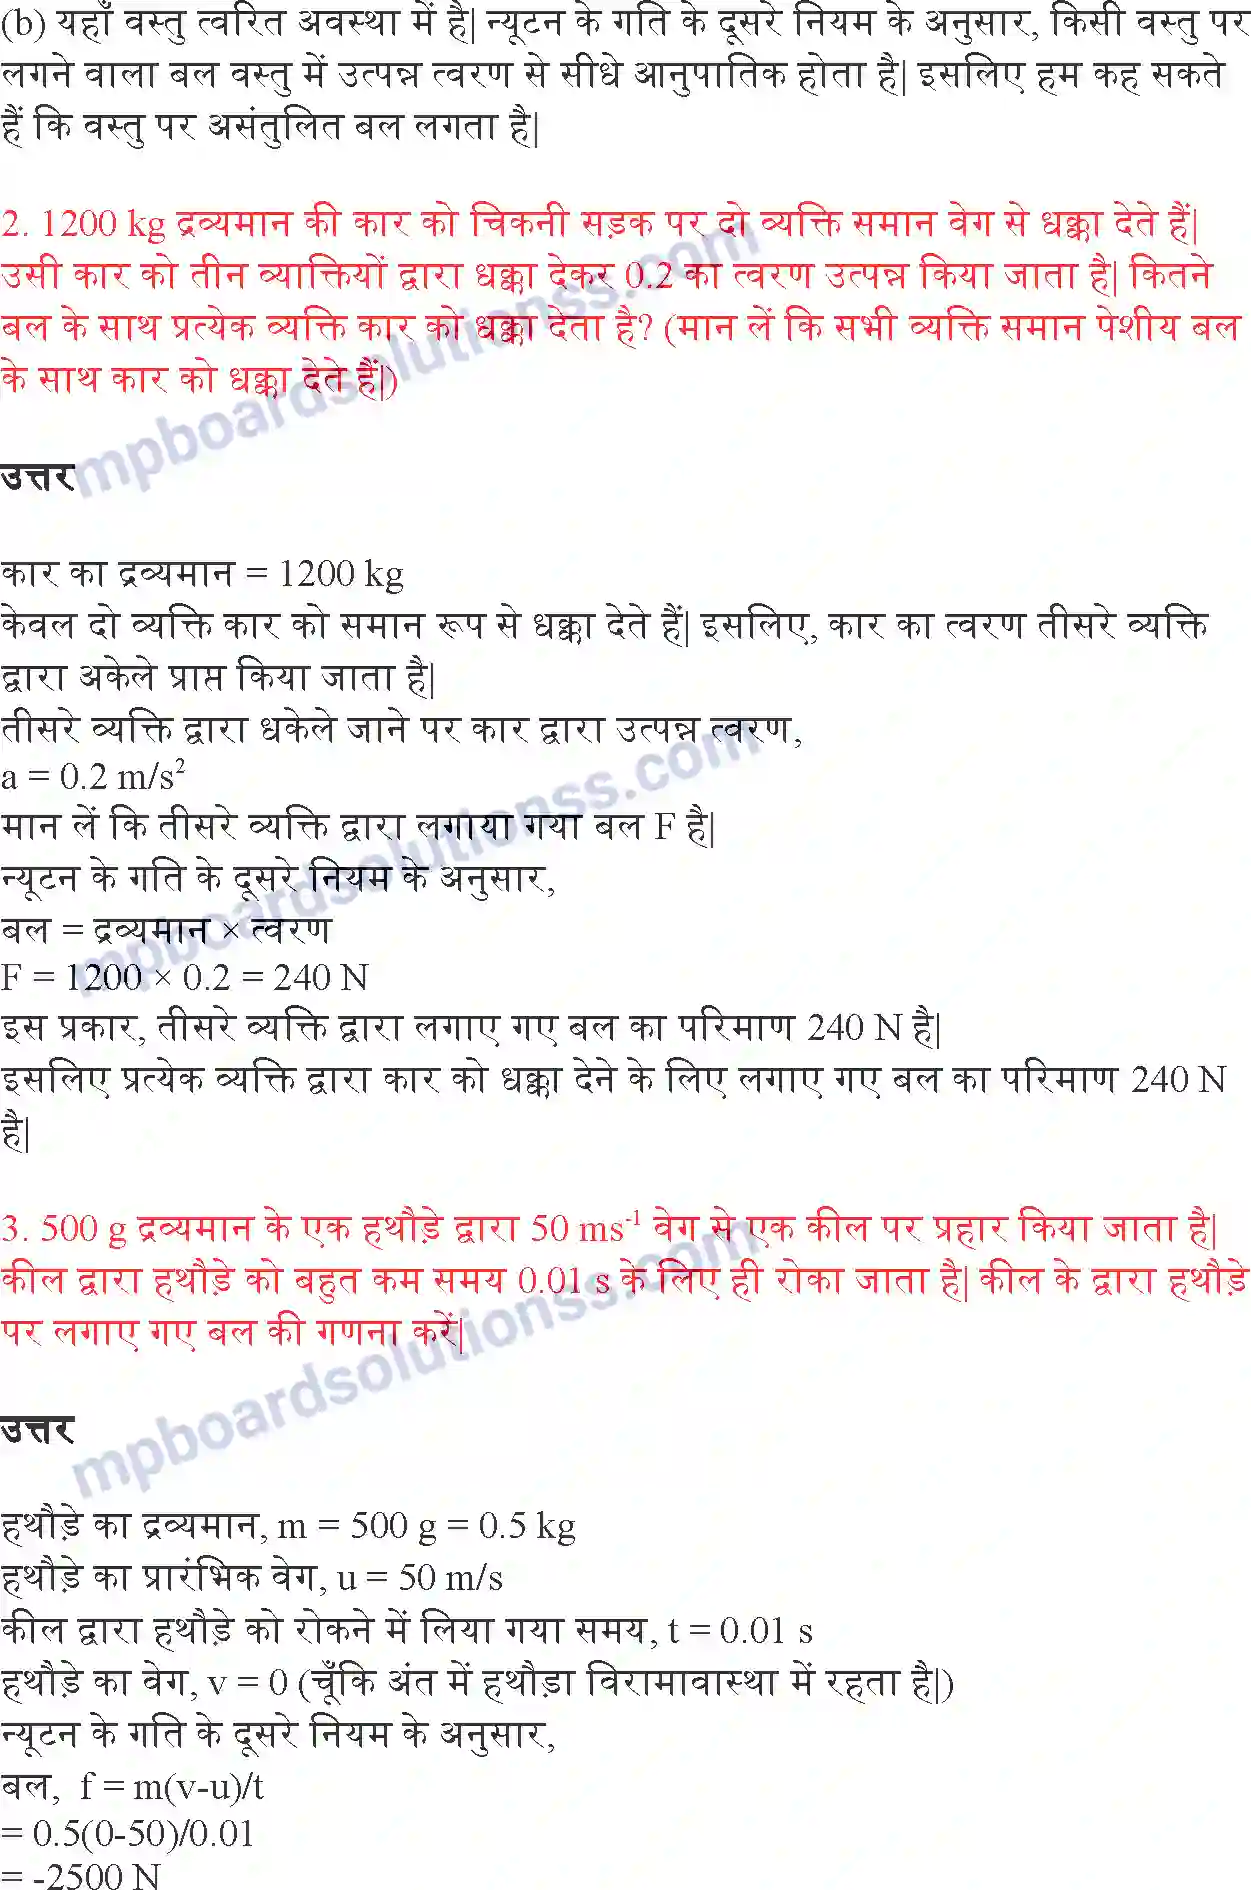 (b) यहाँ वस्तु त्वरित अवस्था में है| न्यूटन के गति के दूसरे नियम के अनुसार, किसी वस्तु पर
लगने वाला बल वस्तु में उत्पन्न त्वरण से सीधे आनुपातिक होता है| इसलिए हम कह सकते
हैं कि वस्तु पर असंतुलित बल लगता है|
2. 1200 kg द्रव्यमान की कार को चिकनी सड़क पर दो व्यक्ति समान वेग से धक्का देते हैं|
उसी कार को तीन व्याक्तियों द्वारा धक्का देकर 0.2 का त्वरण उत्पन्न किया जाता है| कितने
बल के साथ प्रत्येक व्यक्ति कार को धक्का देता है? (मान लें कि सभी व्यक्ति समान पेशीय बल
के साथ कार को धक्का देते हैं|)
mpboardsolutionss.com
उत्तर
कार का द्रव्यमान = 1200 kg
केवल दो व्यक्ति कार को समान रूप से धक्का देते हैं| इसलिए, कार का त्वरण तीसरे व्यक्ति
द्वारा अकेले प्राप्त किया जाता है|
तीसरे व्यक्ति द्वारा धकेले जाने पर कार द्वारा उत्पन्न त्वरण,
a = 0.2 m/s²
मान लें कि तीसरे व्यक्ति द्वारा लगाया गया बल F है|
न्यूटन के गति के दूसरे नियम के अनुसार,
बल = द्रव्यमान × त्वरण
mpboardsolutionss.com
F = 1200 × 0.2 = 240 N
इस प्रकार, तीसरे व्यक्ति द्वारा लगाए गए बल का परिमाण 240 N है|
इसलिए प्रत्येक व्यक्ति द्वारा कार को धक्का देने के लिए लगाए गए बल का परिमाण 240 N
है|
3. 500 g द्रव्यमान के एक हथौड़े द्वारा 50 ms⁻¹ वेग से एक कील पर प्रहार किया जाता है|
कील द्वारा हथौड़े को बहुत कम समय 0.01 s के लिए ही रोका जाता है| कील के द्वारा हथौड़े
पर लगाए गए बल की गणना करें|
mpboardsolutionss.com
उत्तर
हथौड़े का द्रव्यमान, m = 500 g = 0.5 kg
हथौड़े का प्रारंभिक वेग, u = 50 m/s
कील द्वारा हथौड़े को रोकने में लिया गया समय, t = 0.01 s
हथौड़े का वेग, v = 0 (चूँकि अंत में हथौड़ा विरामावास्था में रहता है|)
न्यूटन के गति के दूसरे नियम के अनुसार,
बल, f = m(v-u)/t
= 0.5(0-50)/0.01
= -2500 N